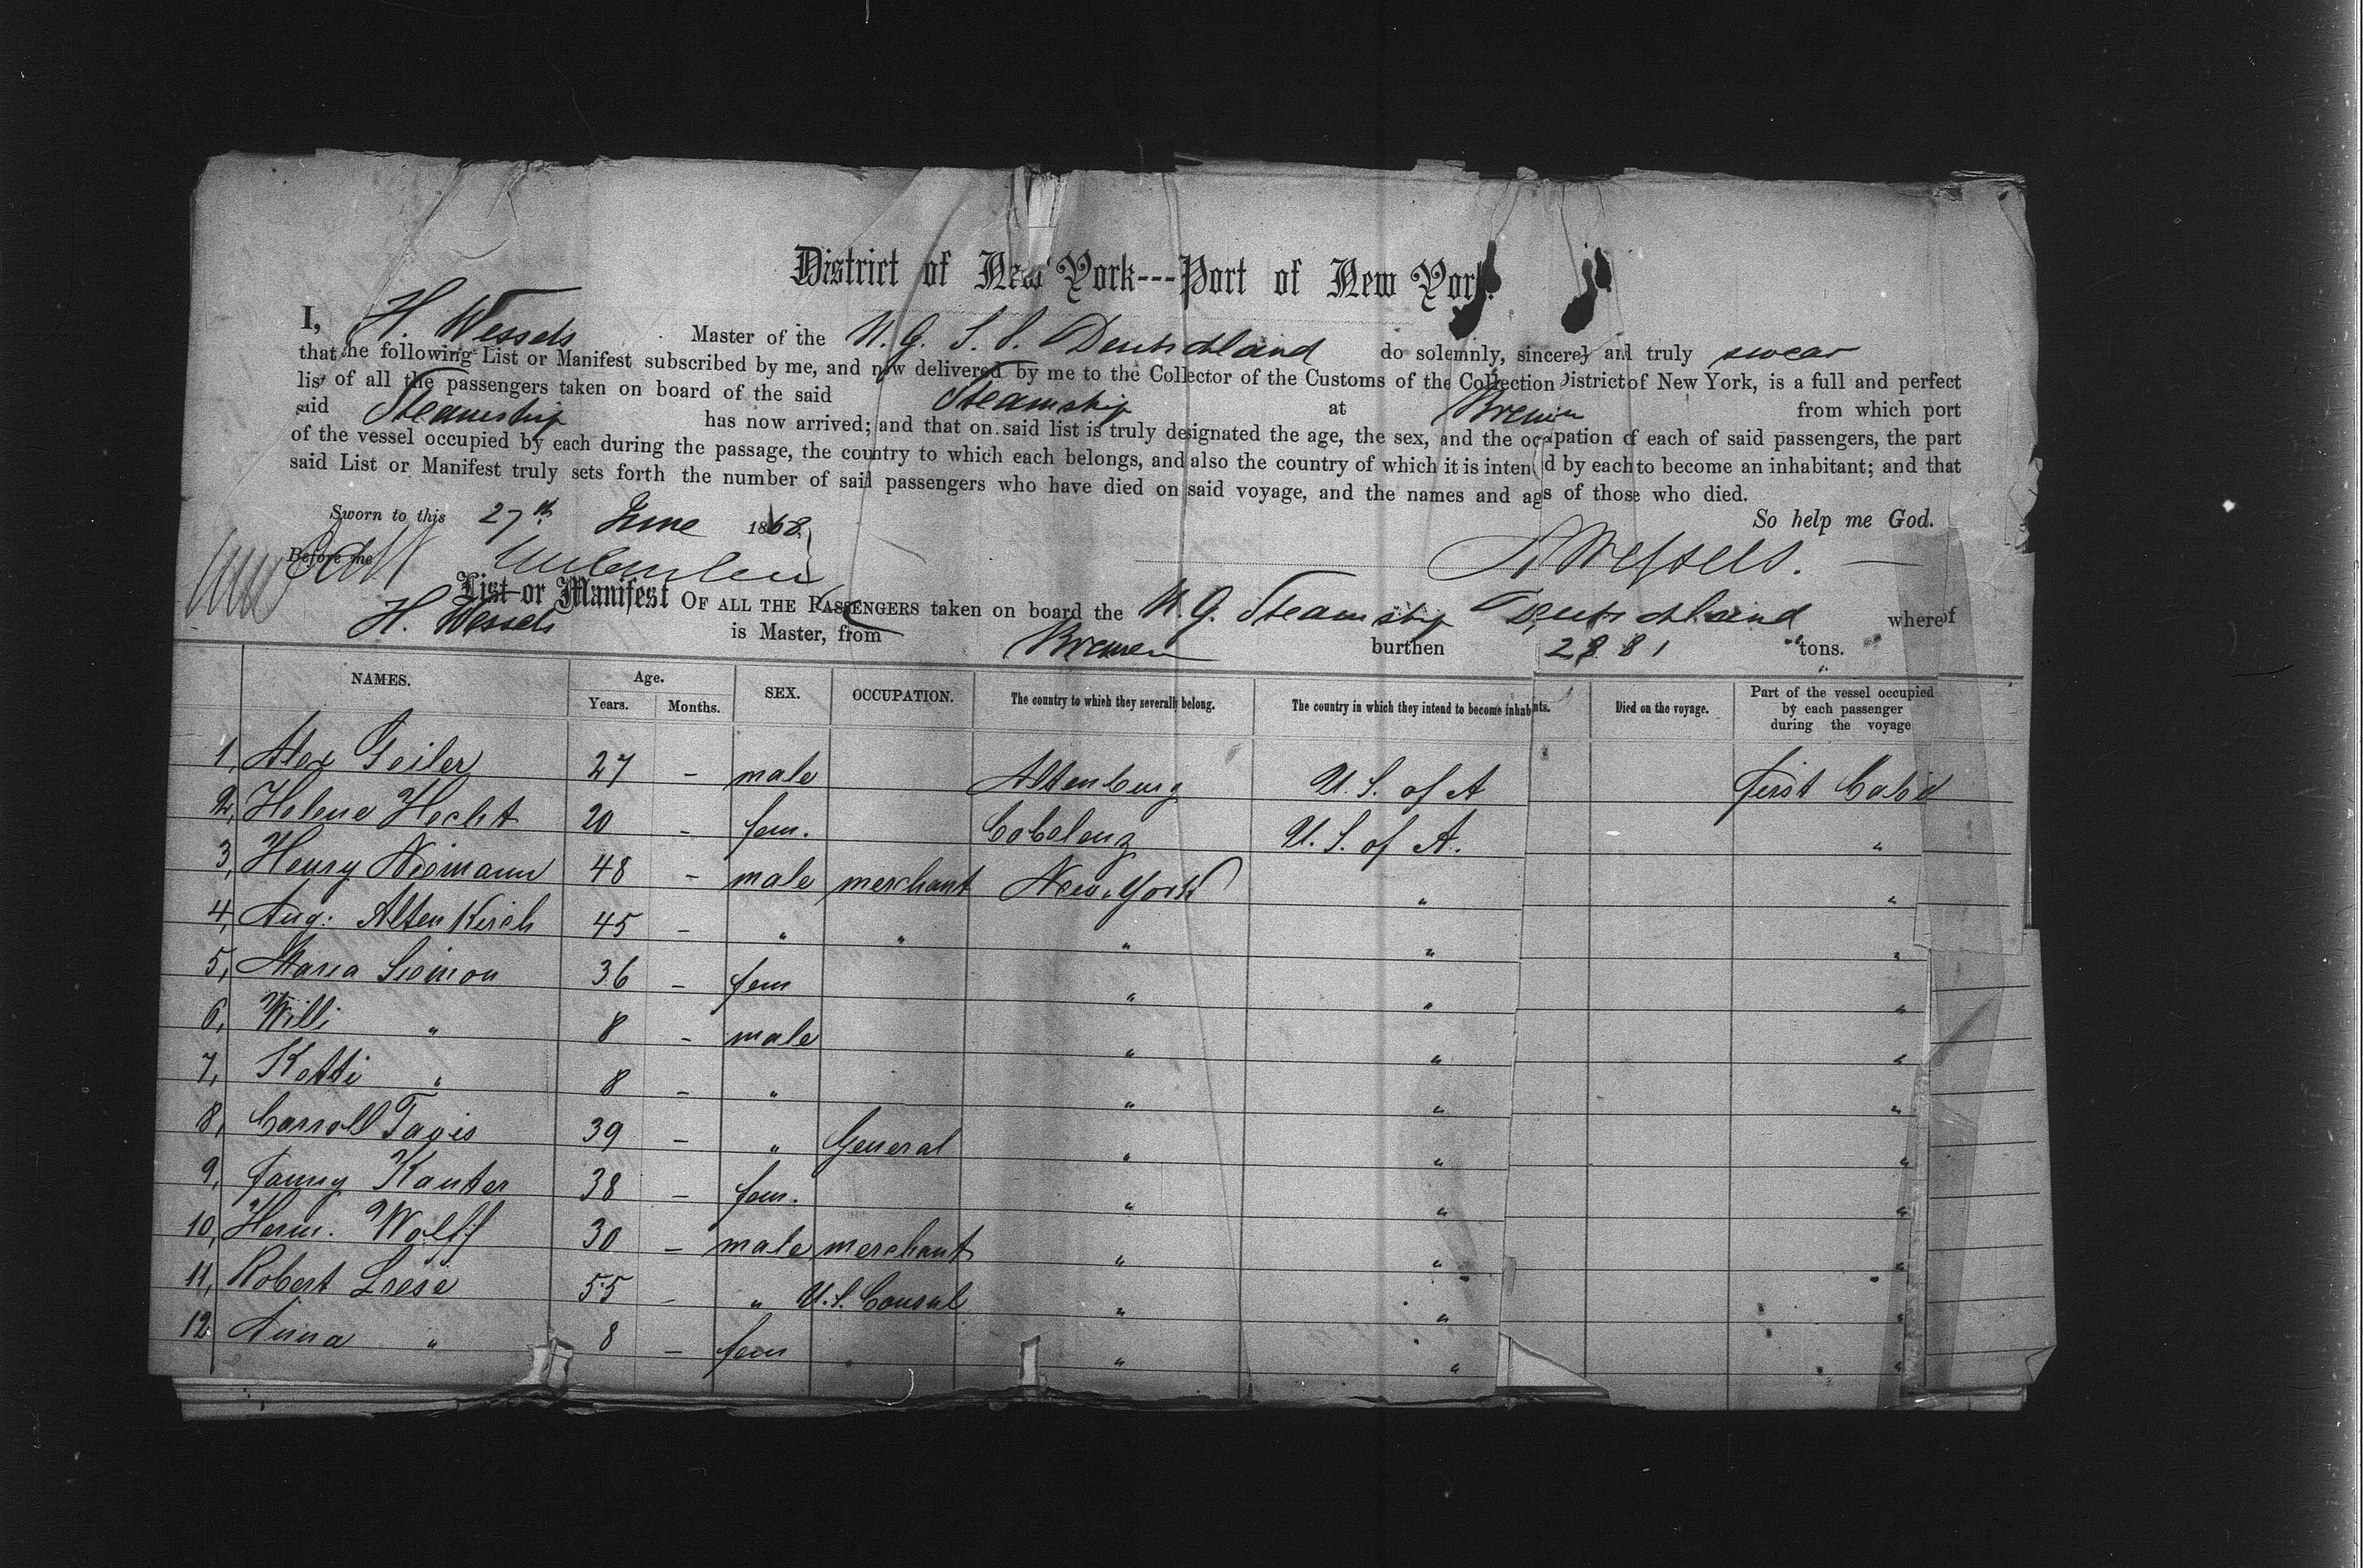 District of New York---Port of New York.
I, H. Wessels Master of the N. G. S. S. Deutschland do solemnly, sincerely and truly swear
that the following List or Manifest subscribed by me, and now delivered by me to the Collector of the Customs of the Collection District of New York, is a full and perfect
list of all the passengers taken on board of the said Steamship at Bremen from which port
said Steamship has now arrived; and that on said list is truly designated the age, the sex, and the occupation of each of said passengers, the part
of the vessel occupied by each during the passage, the country to which each belongs, and also the country of which it is intended by each to become an inhabitant; and that
said List or Manifest truly sets forth the number of said passengers who have died on said voyage, and the names and ages of those who died.
So help me God.
Sworn to this 27th June 1868
Before me
H Wessels.
List or Manifest OF ALL THE PASSENGERS taken on board the N. G. Steamship Deutschland whereof
H. Wessels is Master, from Bremen burthen 2881 tons.
NAMES. Age. Years. Months. SEX. OCCUPATION. The country to which they severally belong. The country in which they intend to become inhabitants. Died on the voyage. Part of the vessel occupied by each passenger during the voyage
1, Alex Geiler 27 - male Altenburg U. S. of A First Cabin
2, Helene Hecht 20 - fem. Cobelenz U. S. of A. "
3, Henry Niemann 48 - male merchant New York " "
4, Aug: Altenkirch 45 - " " " " "
5, Maria Simon 36 - fem " " "
6, Willi " 8 - male " " "
7, Kotti " 8 - " " " "
8, Carroll Tavis 39 - " General " " "
9, Fanny Kanter 38 - fem. " " "
10, Herm. Wolff 30 - male merchant " " "
11, Robert Leese 55 - " U.S. Consul " " "
12 Anna " 8 - fem " " "